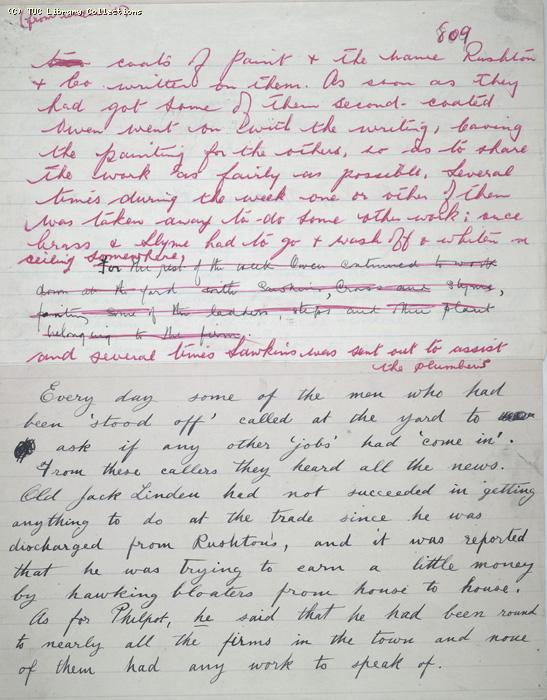 (C) TUC Library Collections
(from
809
two coats of paint & the name Rushton
& Co written on them. As soon as they
had got some of them second-coated
Owen went on with the writing, leaving
the painting for the others, so as to share
the work as fairly as possible. Several
times during the week one or other of them
was taken away to do some other work; once
Crass & Slyme had to go & wash off & whiten a
ceiling somewhere,
For the rest of the week Owen continued to work
down at the yard with Sawkins, Crass and Slyme,
painting some of the ladders, steps and other plant
belonging to the firm.
and several times Sawkins was sent out to assist
the plumbers
Every day some of the men who had
been 'stood off' called at the yard to
ask if any other 'jobs' had 'come in'.
From these callers they heard all the news.
Old Jack Linden had not succeeded in getting
anything to do at the trade since he was
discharged from Rushton's, and it was reported
that he was trying to earn a little money
by hawking bloaters from house to house.
As for Philpot, he said that he had been round
to nearly all the firms in the town and none
of them had any work to speak of.